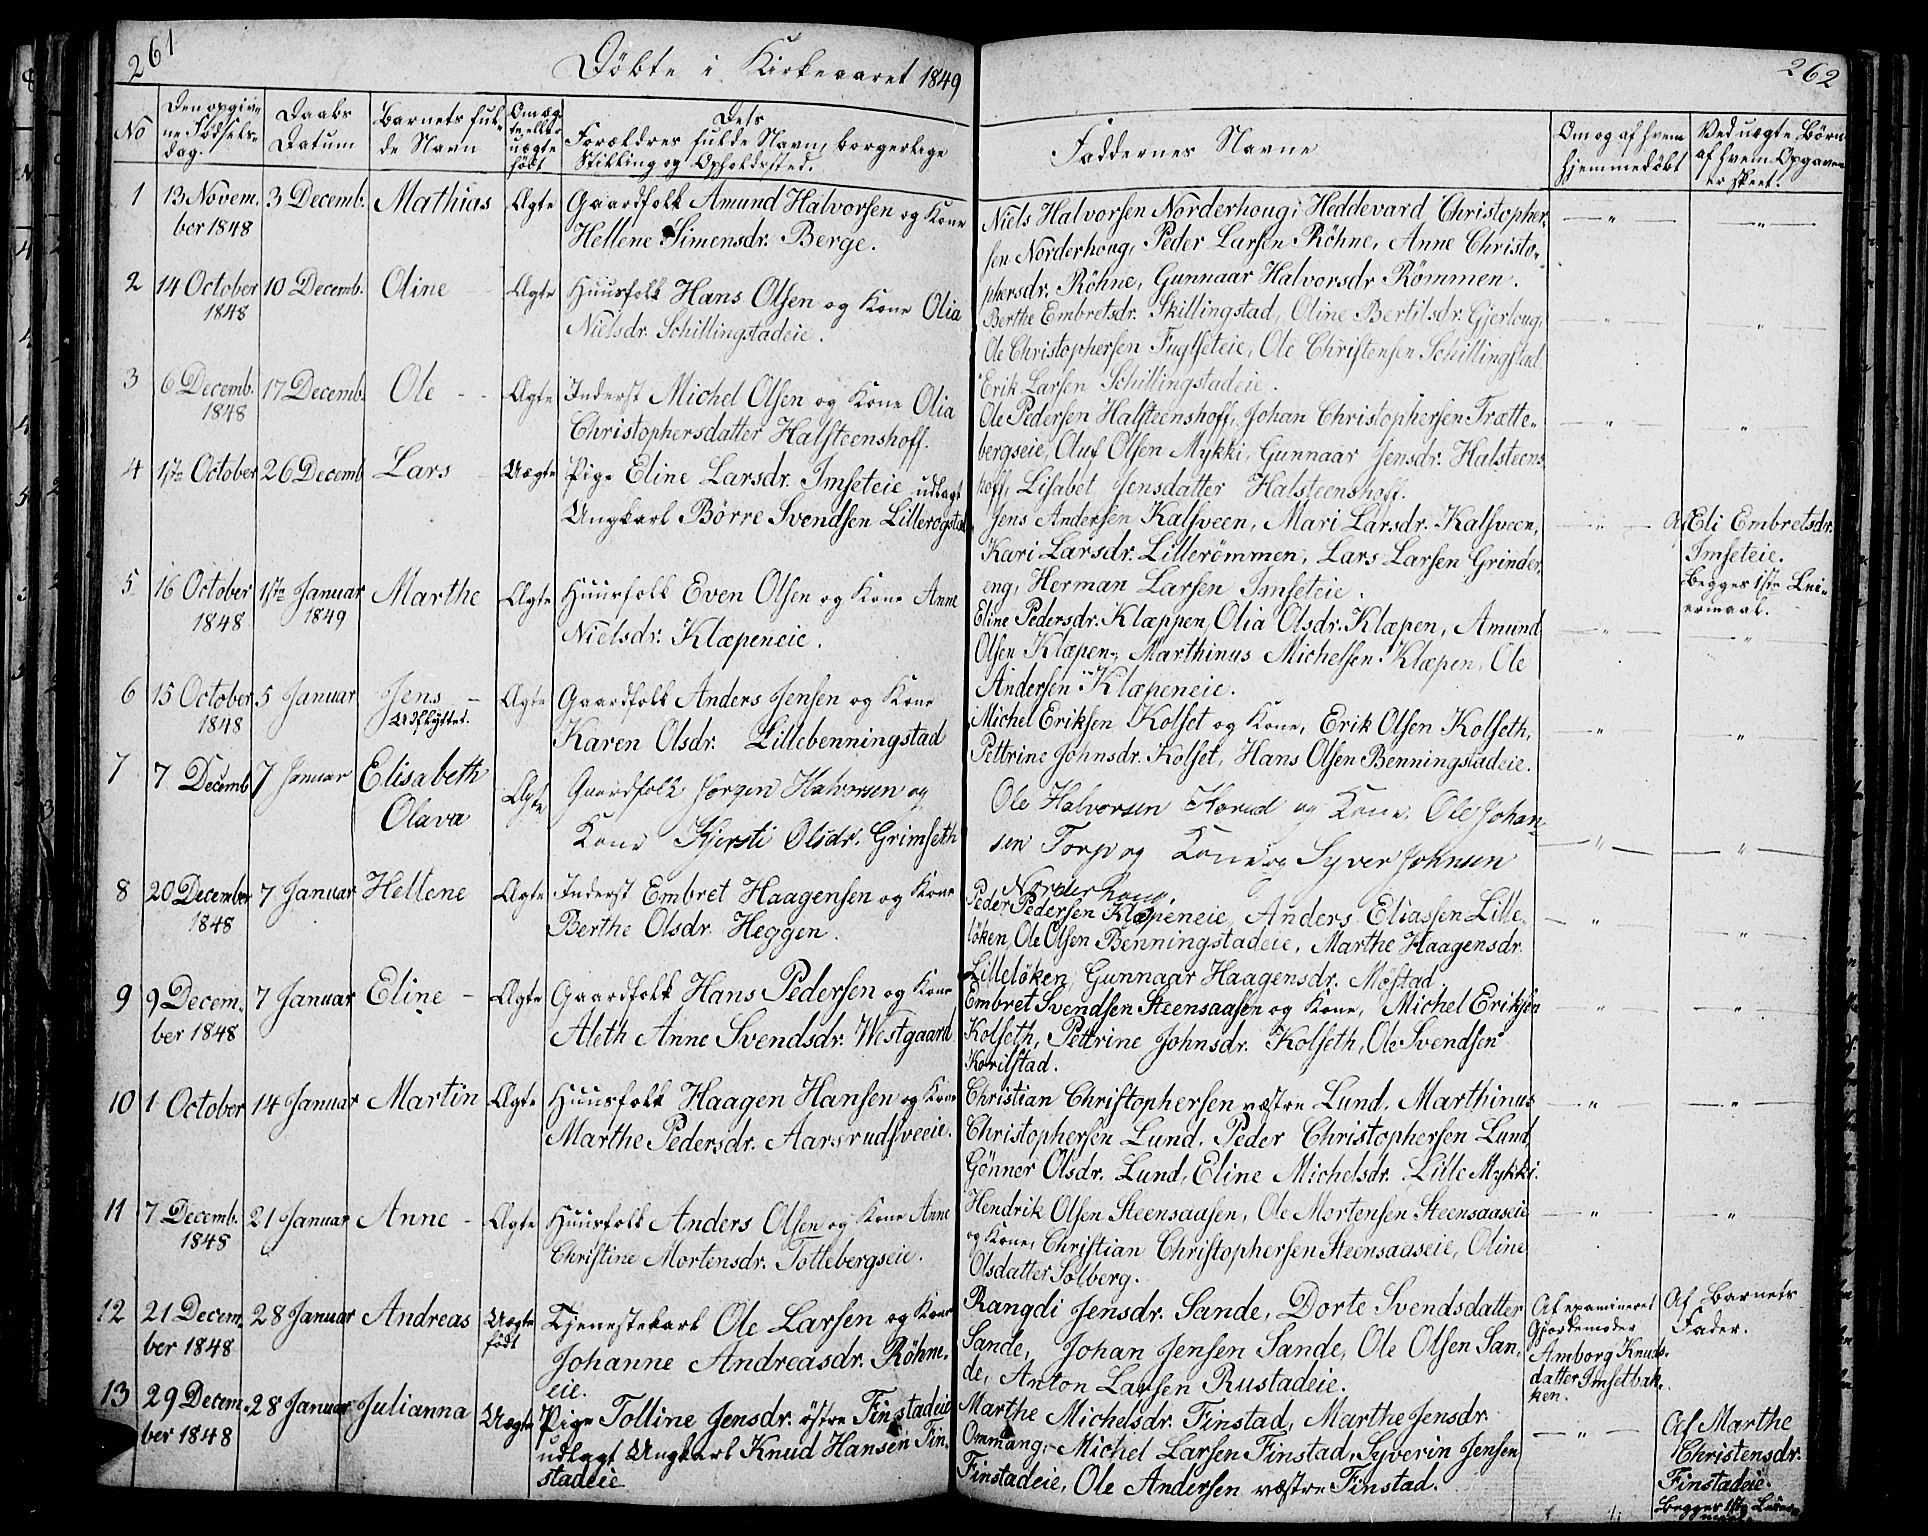 261
Döbte i Kirkeaaret 1849
No
Den opgiv-
ne Fødsels-
dag.
Daabs
Datum
Barnets ful-
de Navn
Om æg-
te eller
uægte
født
Dets
Forældres fulde Navn, borgerlige
Stilling og Opholdssted.
1 13 Novem- 3 Decemb. Mathias Ægte Gaardfolk Amund Halvorsen og Kone
ber 1848 Hellene Simensdr. Berge.
2 14 October 10 Decemb. Oline Ægte Huusfolk Hans Olsen og Kone Olia
1848 Nielsdr. Schillingstadeie.
3 6 Decemb. 17 Decemb. Ole Ægte Inderst Michel Olsen og Kone Olia
1848 Christophersdatter Halsteenshoff.
4 1ste October 26 Decemb Lars Uægte Pige Eline Larsdr. Imseteie udlagt
Ungkarl Børre Svendsen Lillerogstad
5 16 October 1ste Januar Marthe Ægte Huusfolk Even Olsen og Kone Anne
1848 1849 Nielsdr. Klæpeneie.
6 15 October 5 Januar Jens Ægte Gaardfolk Anders Jensen og Kone
1848 Udflyttet. Karen Olsdr. Lillebenningstad
7 7 Decemb 7 Januar Elisabeth Ægte Gaardfolk Jörgen Halvorsen og
Olava Kone Kjersti Olsdr. Grimseth
8 20 December 7 Januar Hellene Ægte Inderst Embret Haagensen og Kone
1848 Berthe Olsdr. Heggen.
9 9 Decem- 7 Januar Eline Ægte Gaardfolk Hans Pedersen og Kone
ber 1848 Aleth Anne Svendsdr. Westgaard
10 1 October 14 Januar Martin Ægte Huusfolk Haagen Hansen og Kone
Marthe Pedersdr. Aarsrudsveeie.
11 7 Decemb. 21 Januar Anne Ægte Huusfolk Anders Olsen og Kone Anne
1848 Christine Mortensdr. Tottebergseie.
12 21 Decem- 28 Januar Andreas Uægte Tjenestekarl Ole Larsen og Kone
ber 1848 født Johanne Andreasdr. Röhne-
eie.
13 29 Decem- 28 Januar Julianna Uægte Pige Tolline Jensdr. östre Finstadeie
ber 1848 udlagt Ungkarl Knud Hansen Fin-
stadeie
262
Faddernes Navne
Om og af hvem
hjemmedöbt
Ved uægte Börn
af hvem Opgaven
er skeet.
Niels Halvorsen Norderhoug, Heddevard Christopher-
sen Norderhoug, Peder Larsen Röhne, Anne Christo-
phersdr. Röhne, Gunnaar Halvorsdr Römmen.
Berthe Embretsdr. Skillingstad, Oline Bertilsdr. Gjerloug,
Ole Christophersen Fuglseteie, Ole Christensen Schillingstad.
Erik Larsen Schillingstadeie.
Ole Pedersen Halsteenshoff, Johan Christophersen Trætte-
bergseie, Oluf Olsen Mykki, Gunnaar Jensdr. Halsteens-
hoff, Lisabet Jensdatter Halsteenshoff.
Jens Andersen Kalsveen, Mari Larsdr. Kalsveen,
Kari Larsdr. Lillerömmen, Lars Larsen Grinder-
eng, Herman Larsen Imseteie.
Af Eli Embretsdr.
Imseteie.
Begges 1ste Lei-
ermaal.
Eline Pedersdr. Klæppen, Olia Olsdr. Klæpen, Amund
Olsen Klæpen, Marthinus Michelsen Klæpen, Ole
Andersen Klæpeneie.
Michel Eriksen Kolset og Kone, Erik Olsen Kolseth,
Pettrine Johnsdr. Kolset, Hans Olsen Benningstadeie.
Ole Halvorsen Korud og Kone, Ole Johan-
sen Torp og Kone og Syver Johnsen
Norderhoug.
Peder Pedersen Klæpeneie, Anders Eliassen Lille-
löken, Ole Olsen Benningstadeie, Marthe Haagensdr.
Lillelöken, Gunnaar Haagensdr. Möstad.
Embret Svendsen Steensaasen og Kone, Michel Eriksen
Kolseth, Pettrine Johnsdr. Kolseth, Ole Svendsen
Korilstad.
Christian Christophersen væstre Lund, Marthinus
Christophersen Lund, Peder Christophersen Lund
Gönner Olsdr. Lund, Eline Michelsdr. Lille Mykki.
Hendrik Olsen Steensaasen, Ole Mortensen Steensaaseie
og Kone, Christian Christophersen Steensaaseie, Oline
Olsdatter Solberg.
Rangdi Jensdr. Sande, Dorte Svendsdatter
Sande, Johan Jensen Sande, Ole Olsen San-
de, Anton Larsen Rustadeie.
Af examineret
Gjordemoder
Amborg Knuds-
datter Imsetbak-
ken.
Af Barnets
Fader.
Marthe Michelsdr. Finstad, Marthe Jensdr.
Ommang, Michel Larsen Finstad, Syverin Jensen
Finstadeie, Ole Andersen væstre Finstad.
Af Marthe
Christensdr.
Finstadeie.
Begges 1ste Leier-